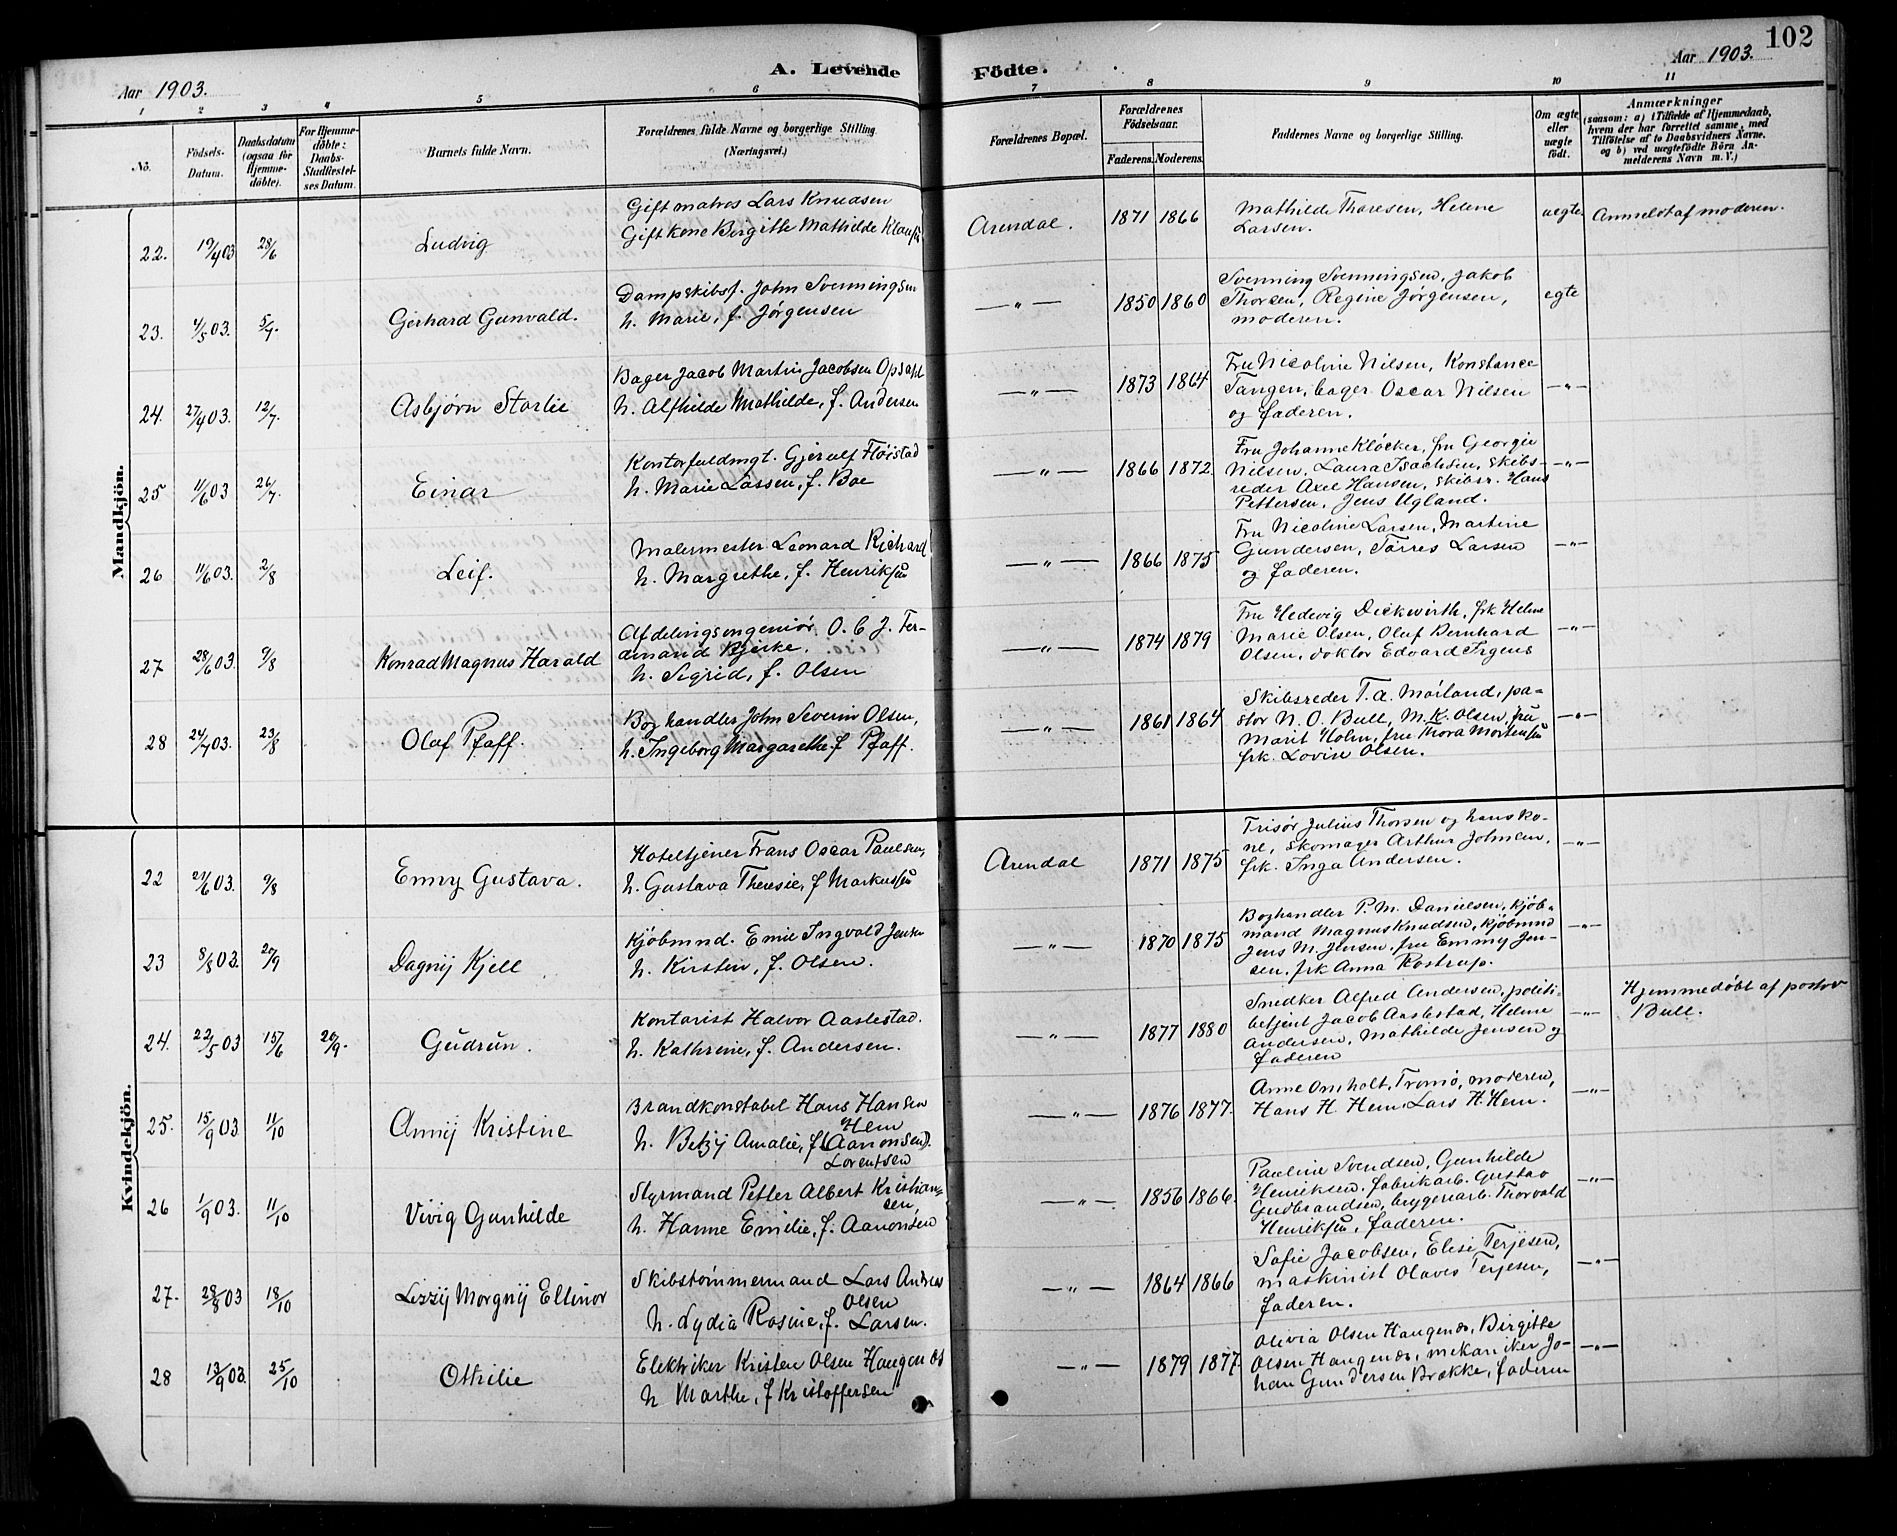 102
Aar 1903.
A. Levende Födte.
Aar 1903.
1 2 3 4 5 6 7 8 9 10 11
No.
Födsels-
Datum.
Daabsdatum
(ogsaa for
Hjemme-
döbte).
For Hjemme-
döbte:
Daabs-
Stadfæstel-
ses Datum.
Barnets fulde Navn.
Forældrenes fulde Navne og borgerlige Stilling.
(Næringsvei.)
Forældrenes Bopæl.
Forældrenes
Födselsaar.
Faderens. Moderens.
Faddernes Navne og borgerlige Stilling.
Om ægte
eller
uægte
födt.
Anmærkninger
(saasom: a) i Tilfælde af Hjemmedaab,
hvem der har forrettet samme, med
Tilföielse af to Daabsvidners Navne.
og b) ved uægtefödte Börn An-
melderens Navn m. V.)
Mandkjön.
22. 19/4 03 28/6 Ludvig
Gift matros Lars Knudsen
Gift kone Birgitte Mathilde
Arendal. 1871 1866
Mathilde Thoresen, Helene
Larsen.
uegte Anmeldt af moderen.
23. 4/5 03. 5/7. Gerhard Gunvald.
Dampskibsf. John Svenningsen
h. Marie, f. Jørgensen
—„— 1850 1860
Svenning Svenningsen, Jakob
Thorsen, Regine Jørgensen,
moderen.
egte
24. 27/4 03. 12/7. Asbjørn Storlie
Bager Jacob Martin Jacobsen Opsahl
h. Alfhilde Mathilde, f. Andersen
—„— 1873 1864
Fru Nicoline Nilsen, Konstance
Tangen, bager Oscar Nilsen
og faderen.
—„—
25 11/6 03 26/7. Einar
Kontorfuldmgt. Gjerulf Fløistad
h. Marie Lassen, f. Boe
—„— 1866 1872.
Fru Johanne Kløcker, fru Georgie
Nilsen, Laura Isachsen, skibs-
reder Axel Hansen, skibsr. Hans
Pettersen, Jens Ugland.
—„—
26 11/6 03. 2/8 Leif.
Malermester Leonard Richard
h. Margrethe, f. Henriksen
—„— 1866 1875
Fru Nicoline Larsen, Martine
Gundersen, Tørres Larsen
og faderen.
—„—
27 28/6 03. 9/8 Konrad Magnus Harald
Afdelingsingeniør O. C. J. Fer-
dinand Bjerke.
h. Sigrid, f. Olsen
—„— 1874 1879
Fru Hedevig Dickwirth, frk Helene
Marie Olsen, Oluf Bernhard
Olsen, doktor Edvard Irgens
—„—
28 24/7 03. 23/8 Olaf Pfaff.
Boghandler John Severin Olsen,
h. Ingeborg Margarethe f Pfaff.
—„— 1861 1864
Skibsreder T. A. Møiland, pa-
stor N. O. Bull, M. K. Olsen, fru
Marit Holm, fru Thora Mortensen
frk. Lovise Olsen.
—„—
Kvindekjön.
22 21/6 03. 9/8 Emmy Gustava.
Hoteltjener Frans Oscar Paulsen,
h. Gustava Theresie, f Markussen
Arendal 1871 1875
Frisør Julius Thorsen og hans ko-
ne, skomager Arthur Johnsen,
frk. Inga Andersen.
—„—
23 8/8 03. 20/9 Dagny Kjell
Kjøbmnd. Emil Ingvald Jensen
h. Kirsten, f. Olsen.
—„— 1870 1875
Boghandler P. M. Danielsen, kjøb-
mand Magnus Knudsen, kjøbmnd
Jens M. Jensen, fru Emmy Jen-
sen, frk Anna Rostrup.
—„—
24. 22/5 03 15/6 20/9. Gudrun.
Kontorist Halvor Aaslestad.
h. Kathrine, f. Andersen.
—„— 1877 1880
Snedker Alfred Andersen, politi-
betjent Jacob Aaslestad, Helene
Andersen, Mathilde Jensen og
faderen
—„— Hjemmedøbt af pastor
Bull.
25. 15/9 03 11/10 Anny Kristine
Brandkonstabel Hans Hansen
Hem
h. Betzy Amalie, f. (Aanonsen).
Lorentsen
—„— 1876 1877.
Anne Omholt, Tromø, moderen,
Hans H. Hem, Lars H. Hem.
—„—
26 1/9 03. 11/10 Vivig Gunhilde
Styrmand Petter Albert Kristian-
sen,
h. Hanne Emilie, f. Aanonsen
—„— 1856 1866.
Pauline Svendsen, Gunhilde
Henriksen, fabrikarb. Gustav
Gudbrandsen, bryggeriarb. Thorvald
Henriksen, faderen.
—„—
27. 28/8 03 18/10 Lizzy Morgny Ellinor
Skibstømmermand Lars Andreas
Olsen
h. Lydia Rosine, f. Larsen.
—„— 1864 1866
Sofie Jacobsen, Elise Terjesen,
maskinist Olaves Terjesen,
faderen.
—„—
28 13/9 03. 25/10 Othilie
Elektriker Kristen Olsen Haugenes
h Marthe, f Kristoffersen
—„— 1879 1877.
Olivia Olsen Haugenes, Birgitte
Olsen Haugenes, mekaniker Jo-
han Gundersen Brække, faderen
—„—